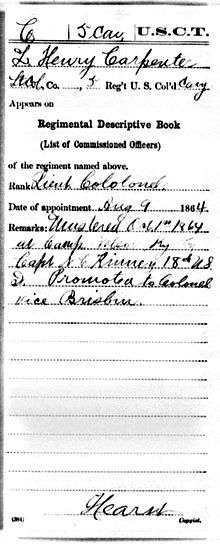 C 5 Cav U.S.C.T.
L. Henry Carpenter
Co. , 5 Reg't U. S. Col'd Cavy
Appears on
Regimental Descriptive Book
(List of Commissioned Officers)
of the regiment named above.
Rank Lieut Colonel
Date of appointment Aug 9 1864
Remarks: Mustered Oct 1st 1864
at Camp Ky
Capt Kinney 18th U S
I. Promoted to Colonel
vice Brisbin
Hearst
(384) Copyist.